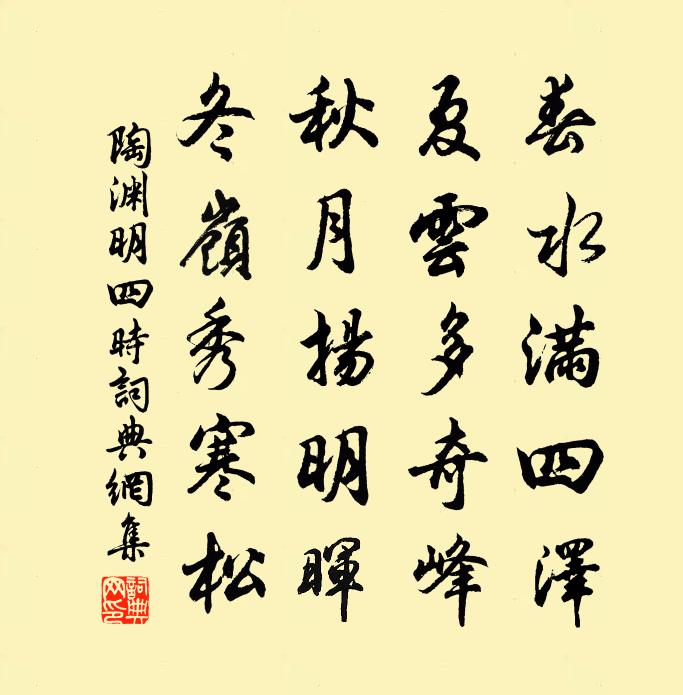 春水滿四澤
夏雲多奇峰
秋月揚明暉
冬嶺秀寒松
陶渊明四時詞典網集
詞典網印